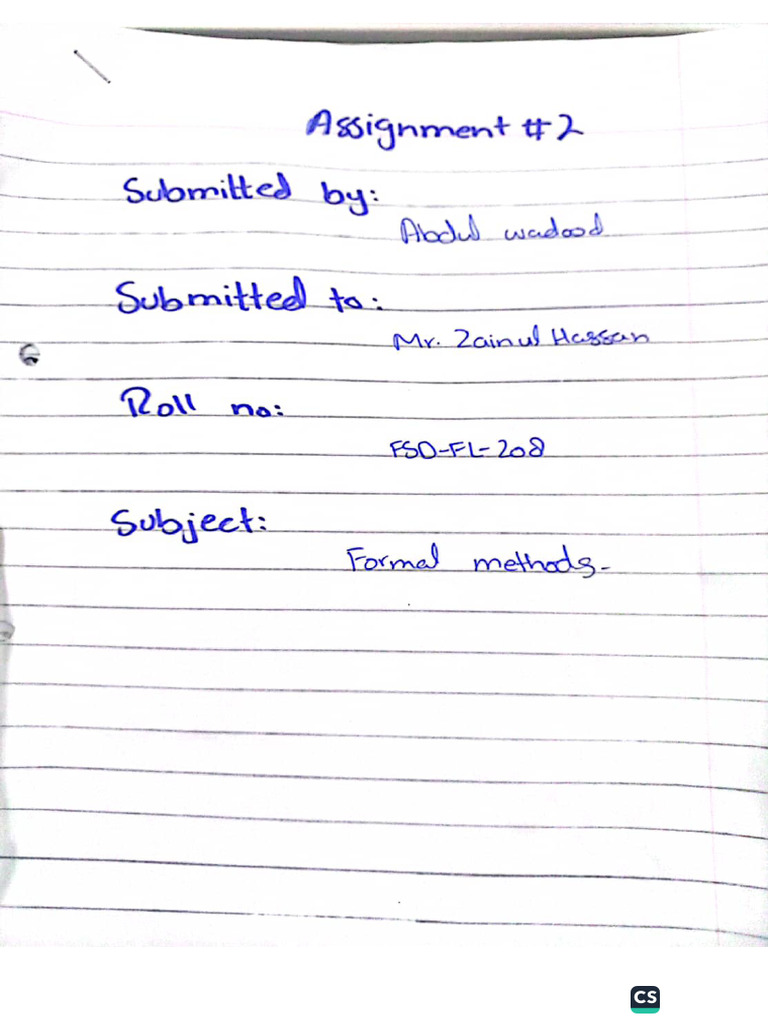 Assignment #2
Submitted by:
Abdul wadood
Submitted to:
Mr. Zainul Hassan
Roll no:
FSD-FL-208
Subject:
Formal methods-
CS